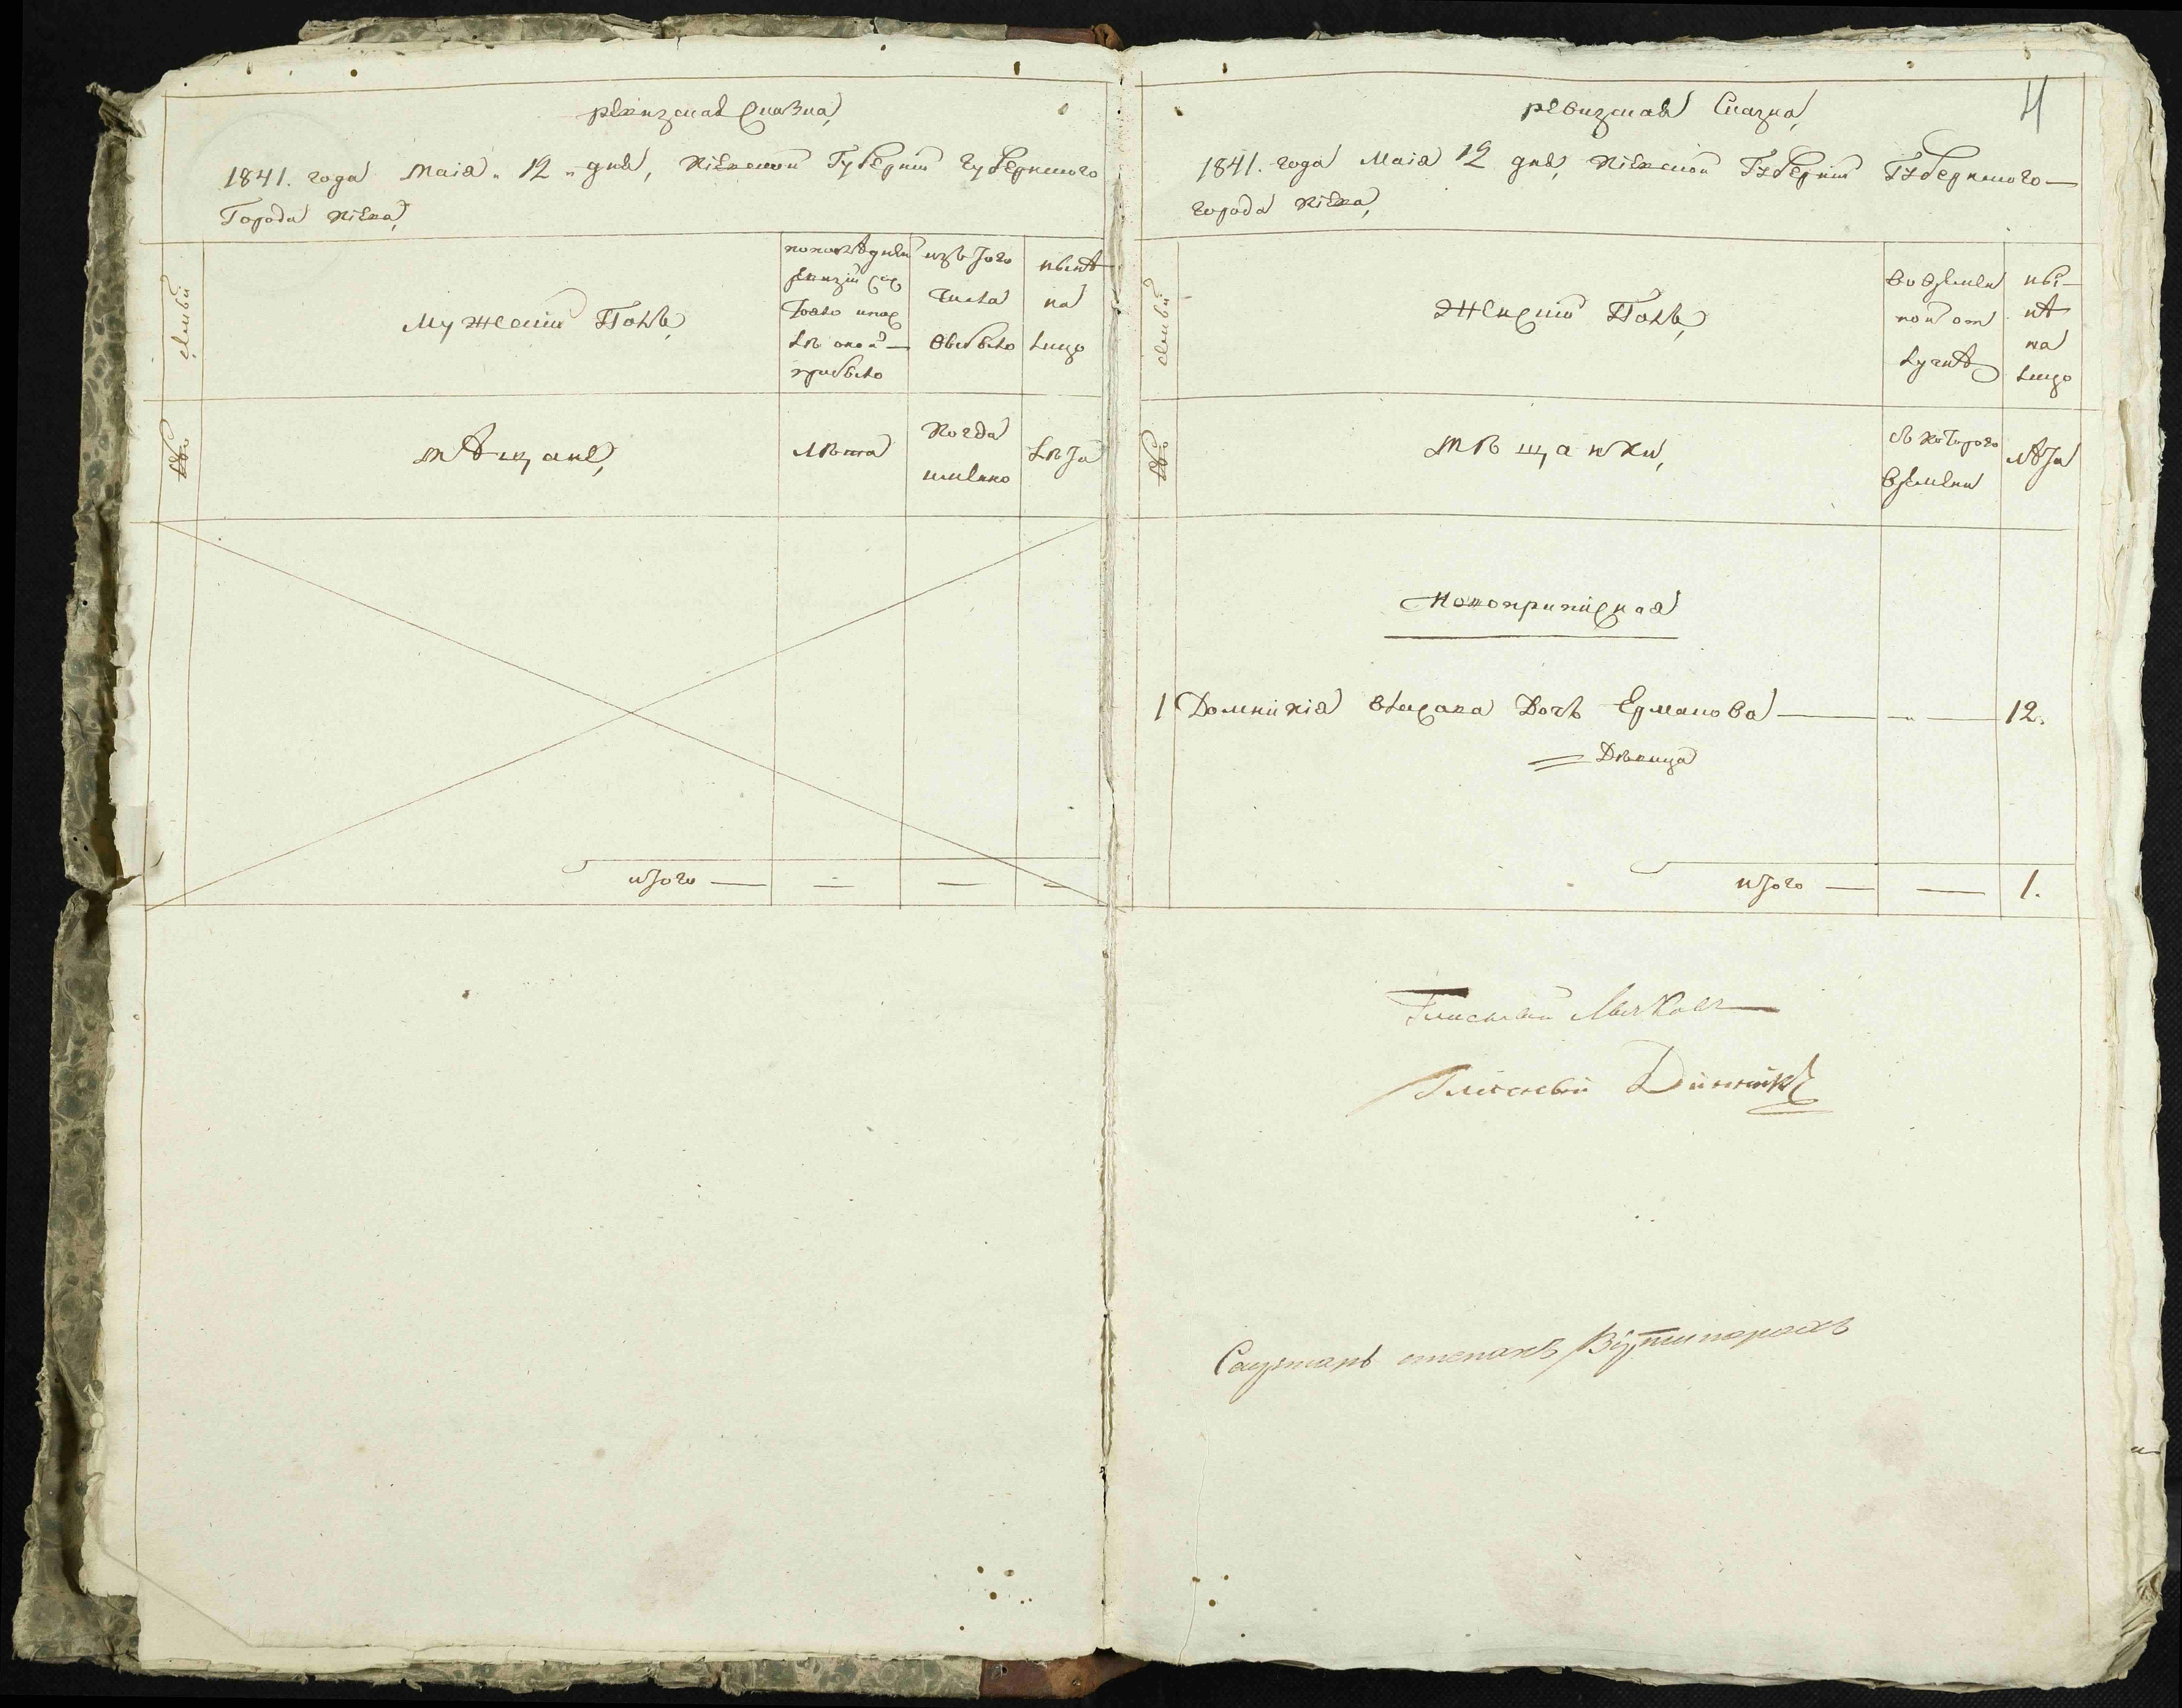 ревизская Сказка,
1841. года маіа 12 дня, Кіевской Губерніи Губернского
Города Кіева,
семьи
Мужеский Полъ,
по послѣдней
ревизіи сос
тояло и пос
лѣ оной
прибыло
изъ того
числа
выбыло
нынѣ
на
лицо
№
мѣщане,
лѣта
Когда
имянно
лѣта
итого — — — —
4
ревизская Сказка,
1841. года Маіа 12 дня, Кіевской Губерніи Губернского
города Кіева,
семьи
Женский Полъ,
во времен
ной от
лучкѣ
ны-
нѣ
на
лицо
№
мѣщанки,
съ котораго
времени
лѣта
Новоприписная
1 Домникія Власова Дочь Ермакова — „ — 12.
Дѣвица
итого — — 1.
Гласный
Гласный Динник
степанъ